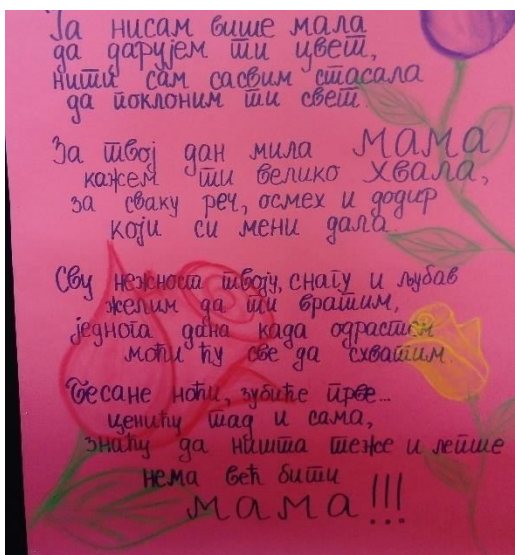 Ја нисам више мала
да дарујем ти цвет,
нити сам сасвим стасала
да поклоним ти свет.
За твој дан мила МАМА
кажем ти велико ХВАЛА,
за сваку реч, осмех и додир
који си мени дала.
Сву нежност твоју, снагу и љубав
желим да ти вратим,
једнога дана када одрастем
моћи ћу све да схватим.
Бесане ноћи, зубиће прве...
ценићу тад и сама,
знаћу да ништа теже и лепше
нема већ бити
МАМА!!!